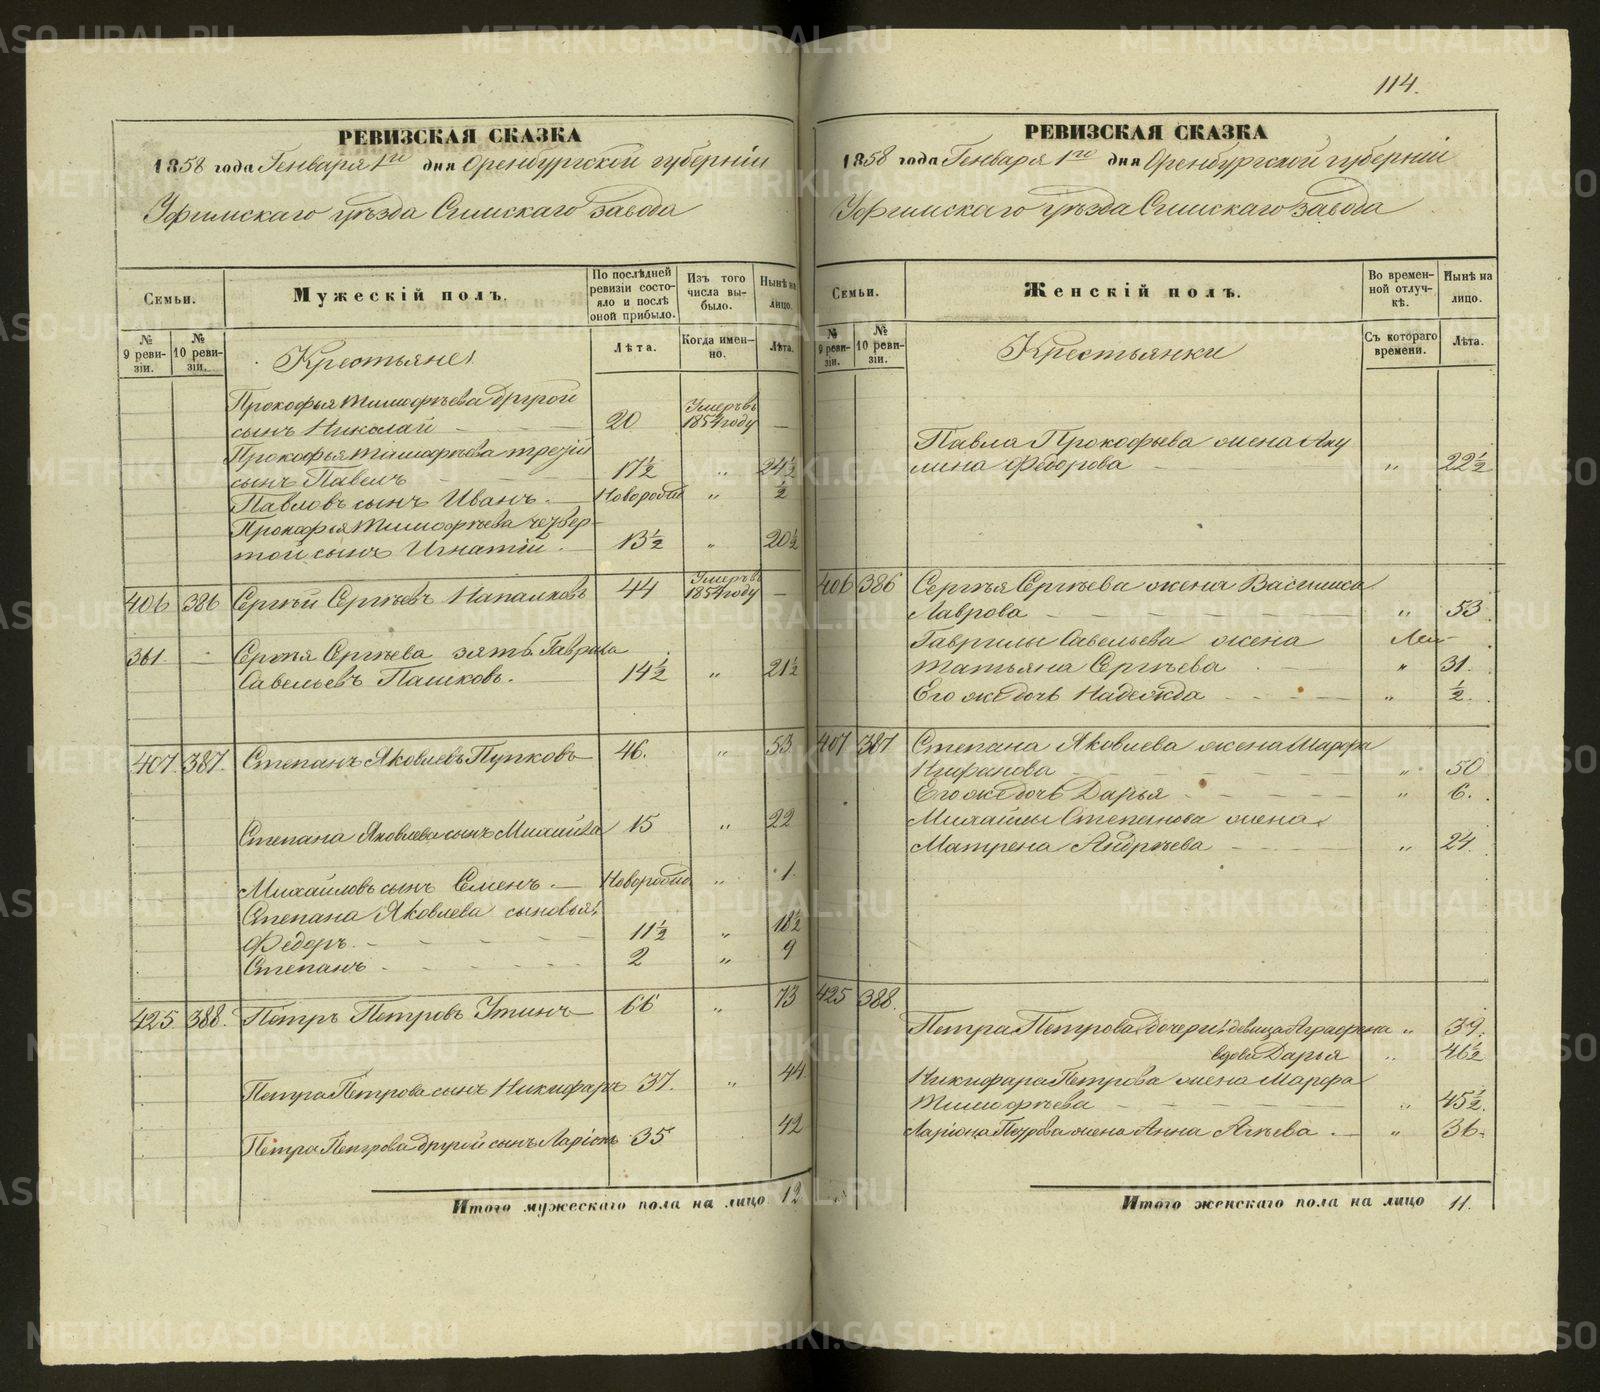 114.
РЕВИЗСКАЯ СКАЗКА
1858 года Генваря 1го дня Оренбургской губерніи
Уфимскаго уѣзда Симскаго завода
Семьи.
Мужескій полъ.
По послѣдней ревизіи состояло и послѣ оной прибыло.
Изъ того числа выбыло.
Нынѣ на лицо.
№ 9 ревизіи.
№ 10 ревизіи.
Крестьяне
Лѣта.
Когда именно.
Лѣта.
Прокофья Тимофѣева другой
сынъ Николай 20 Умеръ въ 1854 году —
Прокофья Тимофѣева третій
сынъ Павелъ 17½ „ 24½
Павловъ сынъ Иванъ. Новорожд „ ½
Прокофья Тимофѣева четвер-
той сынъ Игнатій 13½ „ 20½
406 386 Сергѣй Сергѣевъ Напалковъ 44 Умеръ въ 1854 году —
361 — Сергѣя Сергѣева зять Гаврила
Савельевъ Пашковъ. 14½ „ 21½
407. 387. Степанъ Яковлевъ Пупковъ 46. „ 53
Степана Яковлева сынъ Михайла 15 „ 22
Михайловъ сынъ Семенъ. Новорожд „ 1
Степана Яковлева сыновья:
Федоръ. 11½ „ 18½
Степанъ 2 „ 9
425 388. Петръ Петровъ Утинъ 66 „ 73
Петра Петрова сынъ Никифаръ 37. „ 44
Петра Петрова другой сынъ Ларіонъ 35 42
Итого мужескаго пола на лицо 12
РЕВИЗСКАЯ СКАЗКА
1858 года Генваря 1го дня Оренбургской губерніи
Уфимскаго уѣзда Симскаго завода
Семьи.
Женскій полъ.
Во временной отлучкѣ.
Нынѣ на лицо.
№ 9 ревизіи.
№ 10 ревизіи.
Крестьянки
Съ котораго времени.
Лѣта.
Павла Прокофьева жена Аку
лина Федорова „ 22½
406 386 Сергѣя Сергѣева жена Василиса
Лаврова „ 53
Гаврилы Савельева жена
Татьяна Сергѣева „ 31.
Его же дочь Надежда „ ½
407 387 Степана Яковлева жена Марфа
Нифанова „ 50
Его же дочь Дарья „ 6.
Михайлы Степанова жена
Матрена Андрѣева „ 24
425 388.
Петра Петрова дочери: девица Аграфена „ 39.
вдова Дарья „ 46½
Никифара Петрова жена Марфа
Тимофѣева „ 45½
Ларіона Петрова жена Анна „ 36.
Итого женскаго пола на лицо 11.
METRIKI.GASO-URAL.RU